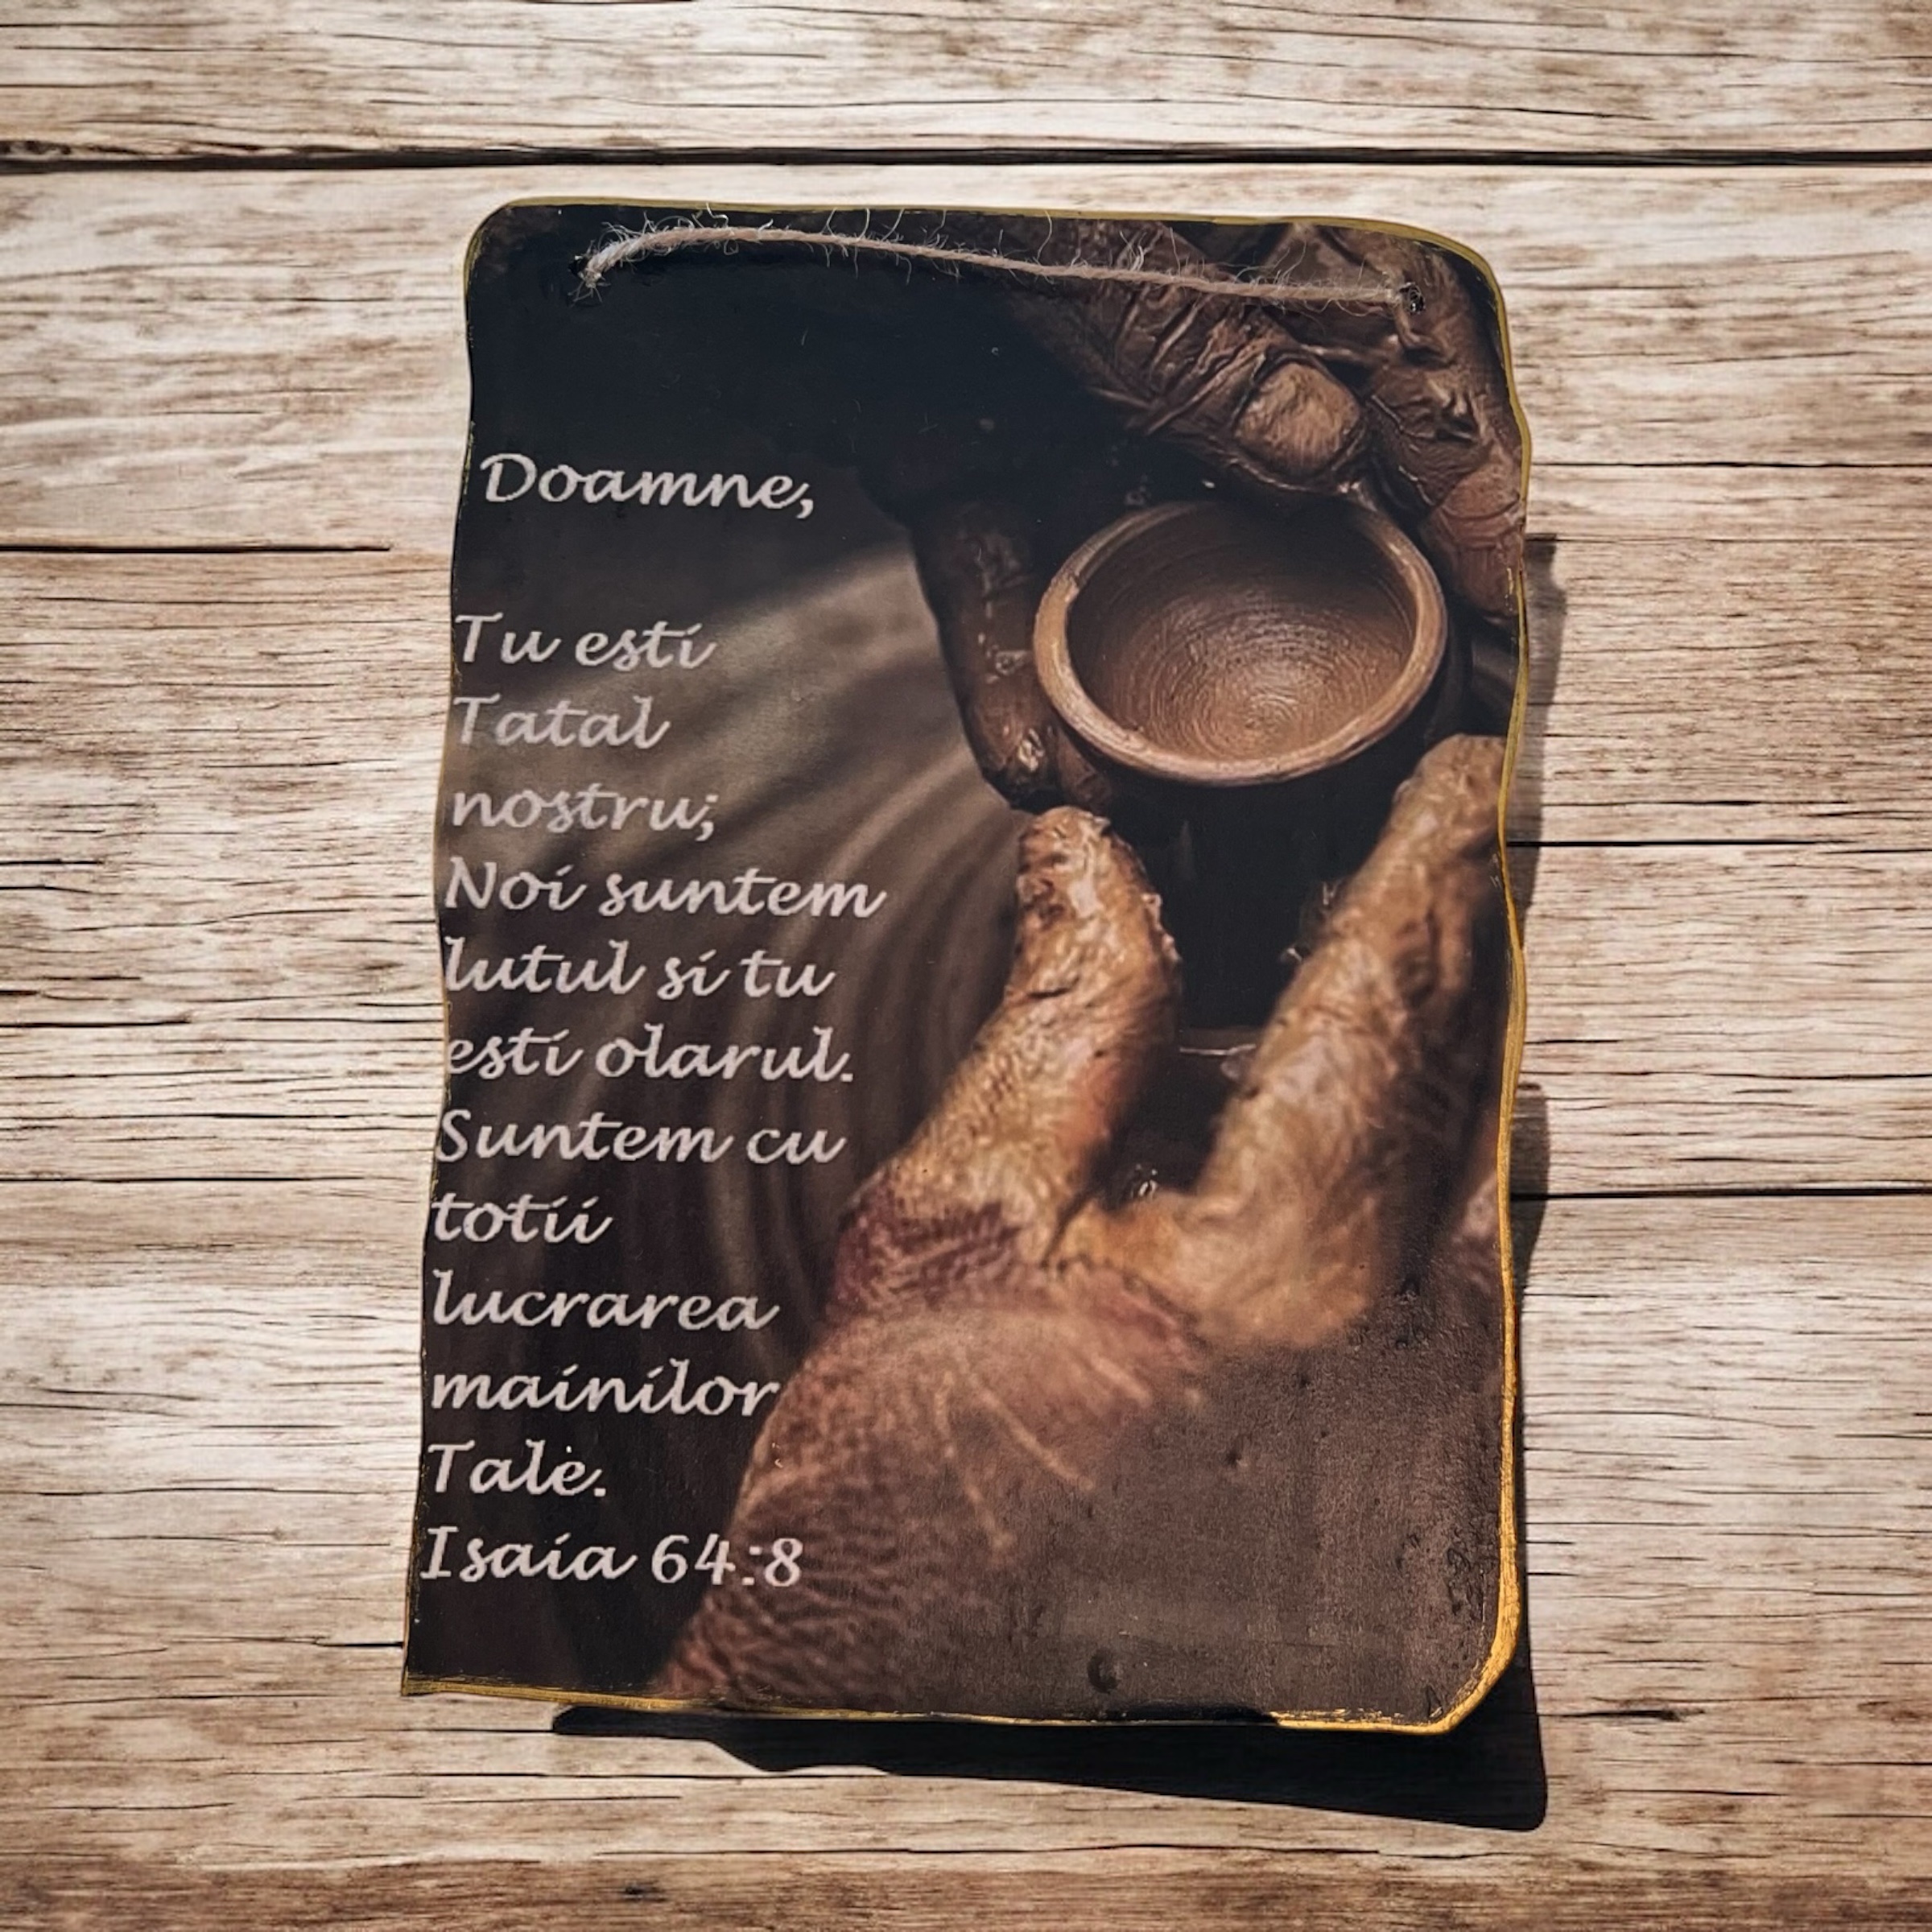 Doamne,
Tu esti
Tatal
nostru;
Noi suntem
lutul si tu
esti olarul.
Suntem cu
totii
lucrarea
mainilor
Tale.
Isaia 64:8